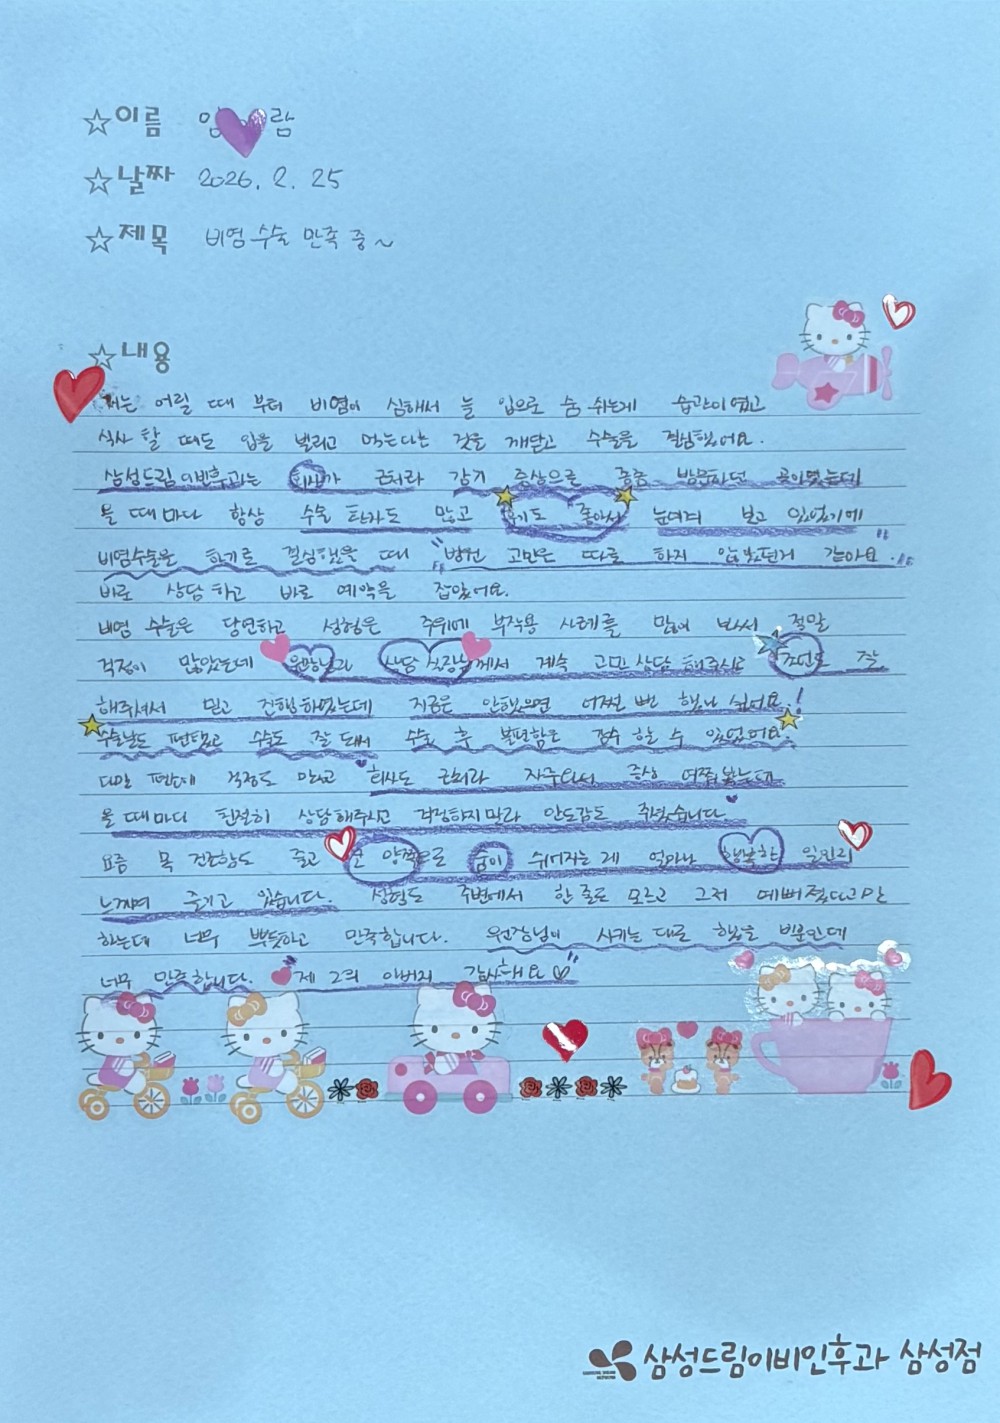 ☆이름 임 람
☆날짜 2026. 2. 25
☆제목 비염 수술 만족 중~
☆내용
저는 어릴 때 부터 비염이 심해서 늘 입으로 숨 쉬는게 습관이였고
식사 할 때도 입을 벌리고 먹는다는 것을 깨닫고 수술을 결심했어요.
삼성드림이빈후과는 회사가 근처라 감기 증상으로 종종 방문하던 곳이였는데
올 때마다 항상 수술 환자도 많고 후기도 좋아서 눈여겨 보고 있었기에
비염수술을 하기로 결심했을 때 "병원 고민은 따로 하지 않았던거 같아요."
바로 상담하고 바로 예약을 잡았어요.
비염 수술은 당연하고 성형은 주위에 부작용 사례를 많이 봐서 정말
걱정이 많았는데 원장님과 상담 실장님께서 계속 고민 상담 해주시고 조언도 잘
해주셔서 믿고 진행하였는데 지금은 안했으면 어쩔 뻔 했나 싶어요!
수술날도 편했고 수술도 잘 돼서 수술 후 불편함은 감수 할 수 있었어요.
다만 편한데 걱정도 많고 회사도 근처라 자주와서 증상 여쭤봤는데
올 때마다 친절히 상담해주시고 걱정하지말라 안도감도 주셨습니다.
요즘 목 건조함도 줄고 코 양쪽으로 숨이 쉬어지는 게 얼마나 행복한 일인지
느끼며 즐기고 있습니다. 성형도 주변에서 한 줄도 모르고 그저 예뻐졌다고만
하는데 너무 뿌듯하고 만족합니다. 원장님이 시키는 대로 했을 뿐인데
너무 만족합니다. 제 2의 아버지 감사해요♡"
삼성드림이비인후과 삼성점